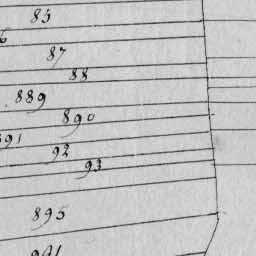 85
6
87
88
889
890
891
92
93
895